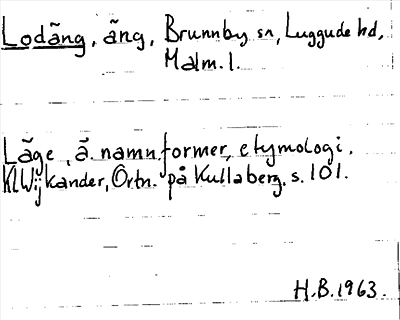 Lodäng, äng, Brunnby sn, Luggude hd,
Malm. l.
Läge, ä. namnformer, etymologi.
KlWijkander, Ortn. på Kullaberg, s. 101.
H.B. 1963.